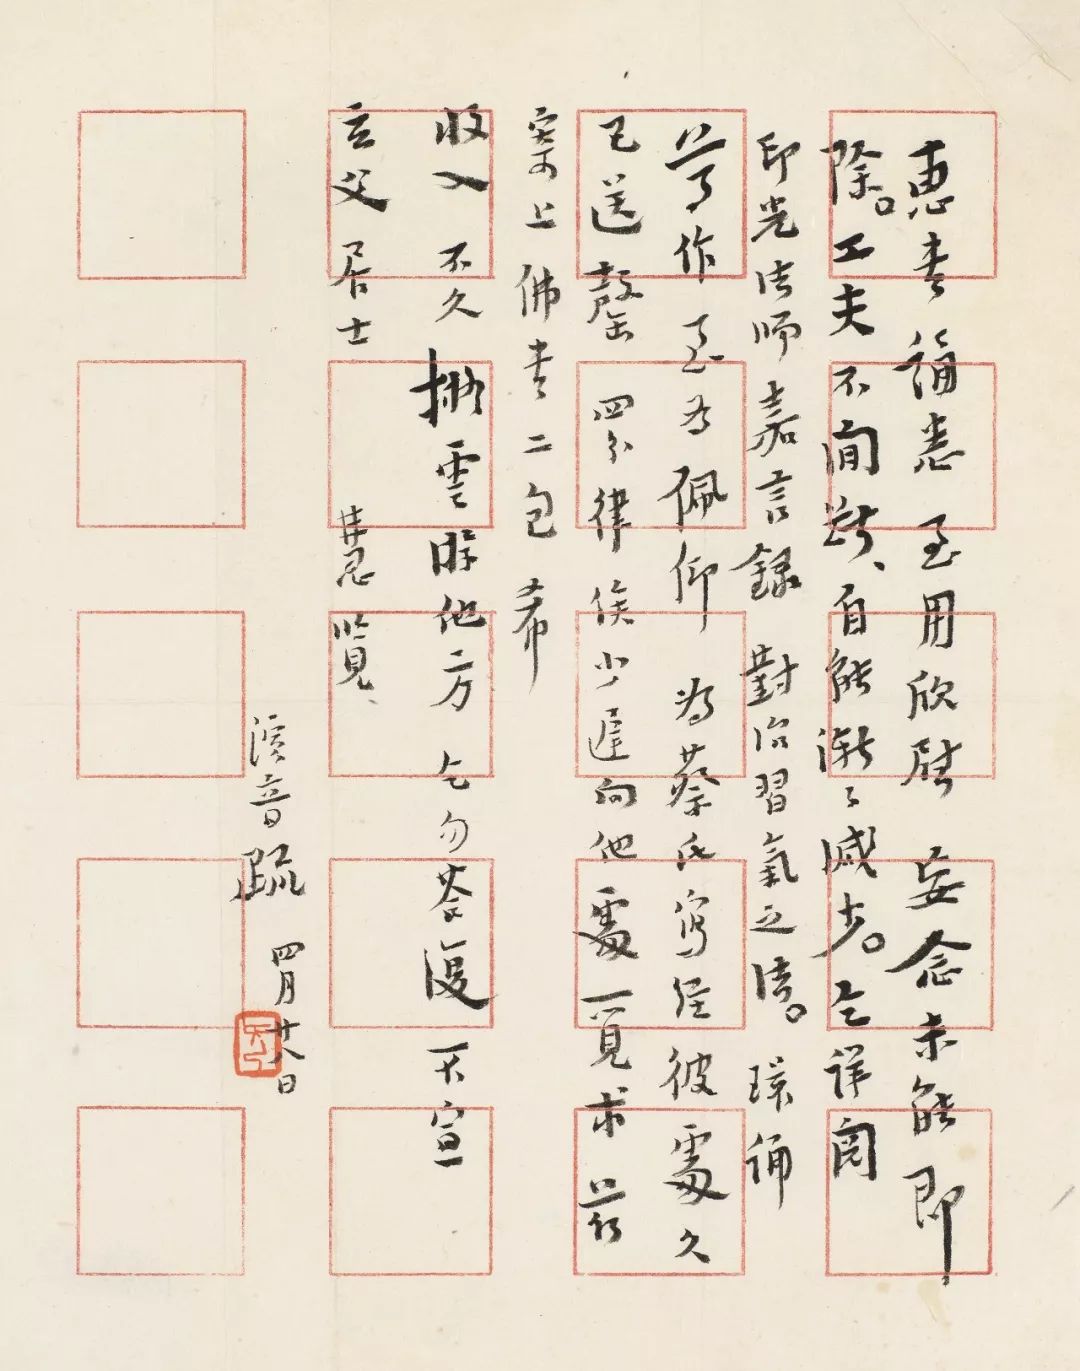 惠書誦悉至用欣慰妄念未能即
除。工夫不间断、自能漸々減少。乞詳閱
印光法師嘉言錄對治習氣之法。環誦
尊作至为佩仰为蔡氏寫经彼處久
已送罄四分律俟少遲向他處覓求茲
寄上佛書二包希
收入不久擬雲游他方乞勿答復不宣
玄父居士慧覽、
演音疏四月廿八日